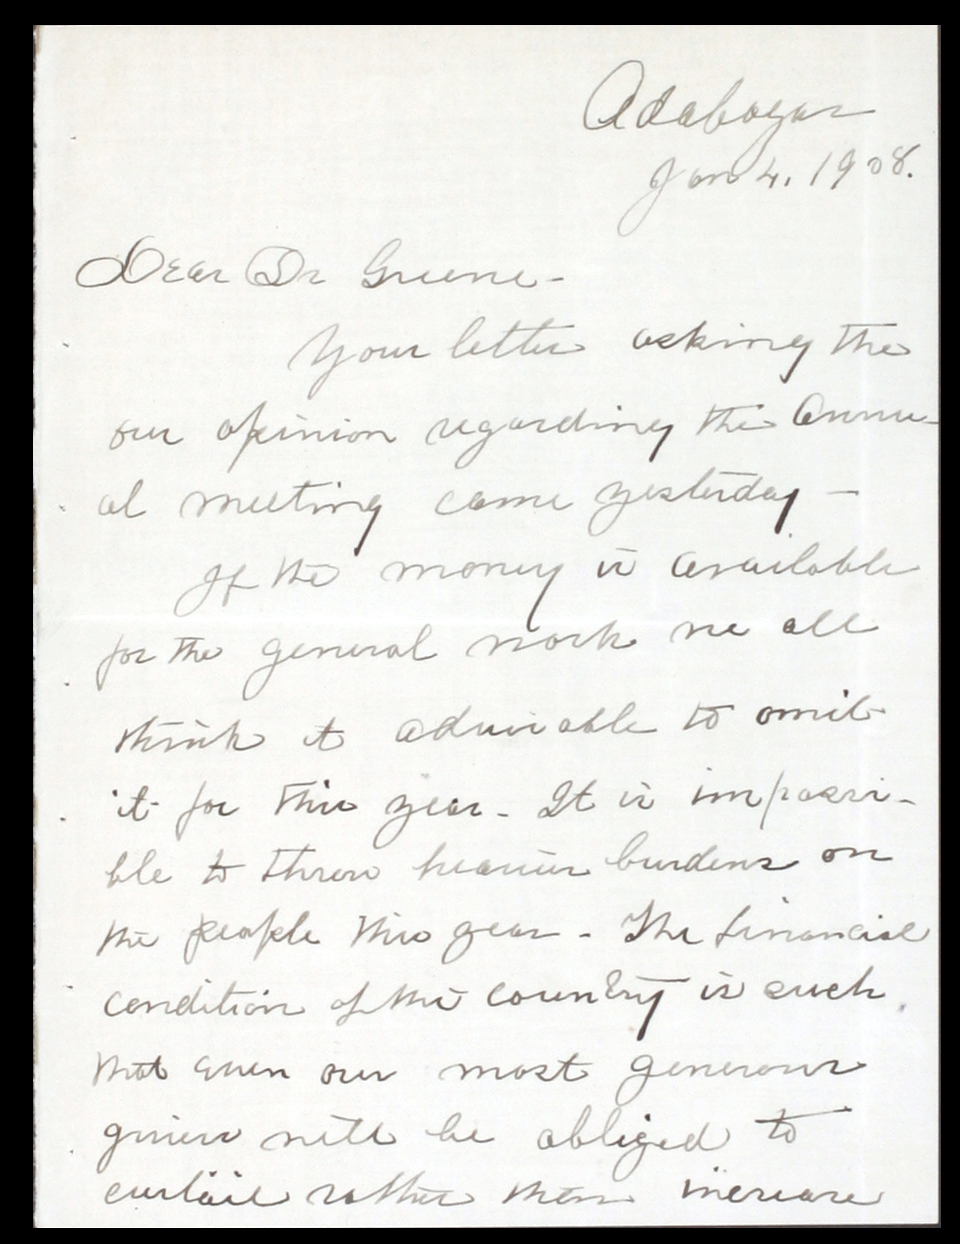 Adabazar
Jan 4, 1908.
Dear Dr Greene -
Your letter asking the
our opinion regarding the Annu-
al meeting came yesterday -
If the money is available
for the general work we all
think it advisable to omit
it for this year - It is impossi-
ble to throw heavier burdens on
the people this year - The financial
condition of the country is such
that even our most generous
givers will be obliged to
curtail rather than increase